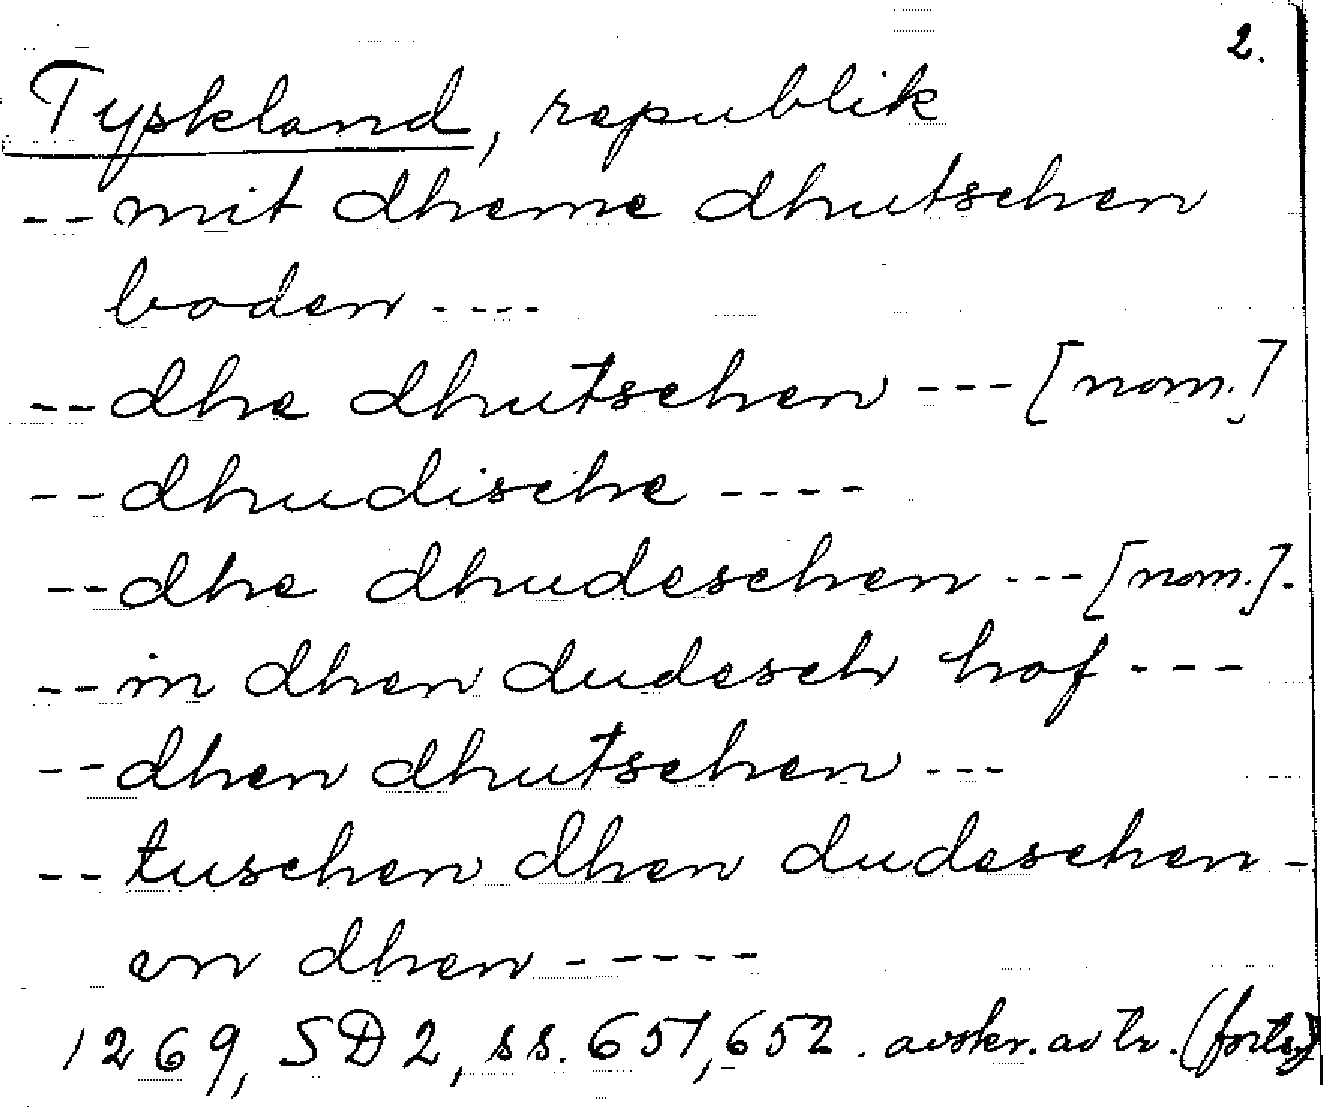 2.
Tyskland, republik
-- mit dheme dhutschen
boden ----
-- dhe dhutschen --- [nom.]
-- dhudische ----
-- dhe dhudeschen --- [nom.].
-- in dhen dudesch hof ---
-- dhen dhutschen ---
-- tuschen dhen dudeschen -
en dhen -----
1269, SD 2, ss. 651, 652. avskr. av tr. (forts.)